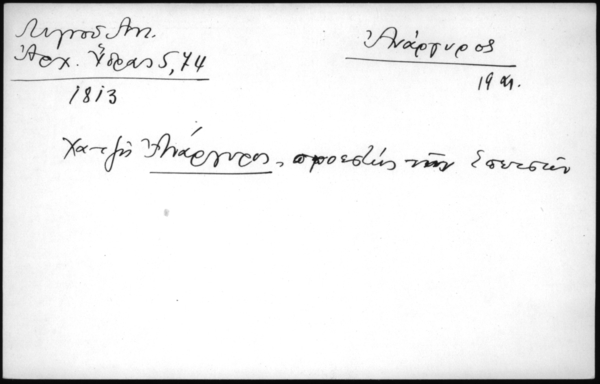 Λιγνοῦ Αντ.
Ἀρχ. Ὕδρας 5, 74
1813
Ἀνάργυρος
19 αι.
Χατζῆ Ἀνάργυρος, προεστώς τῶν Σπετσῶν